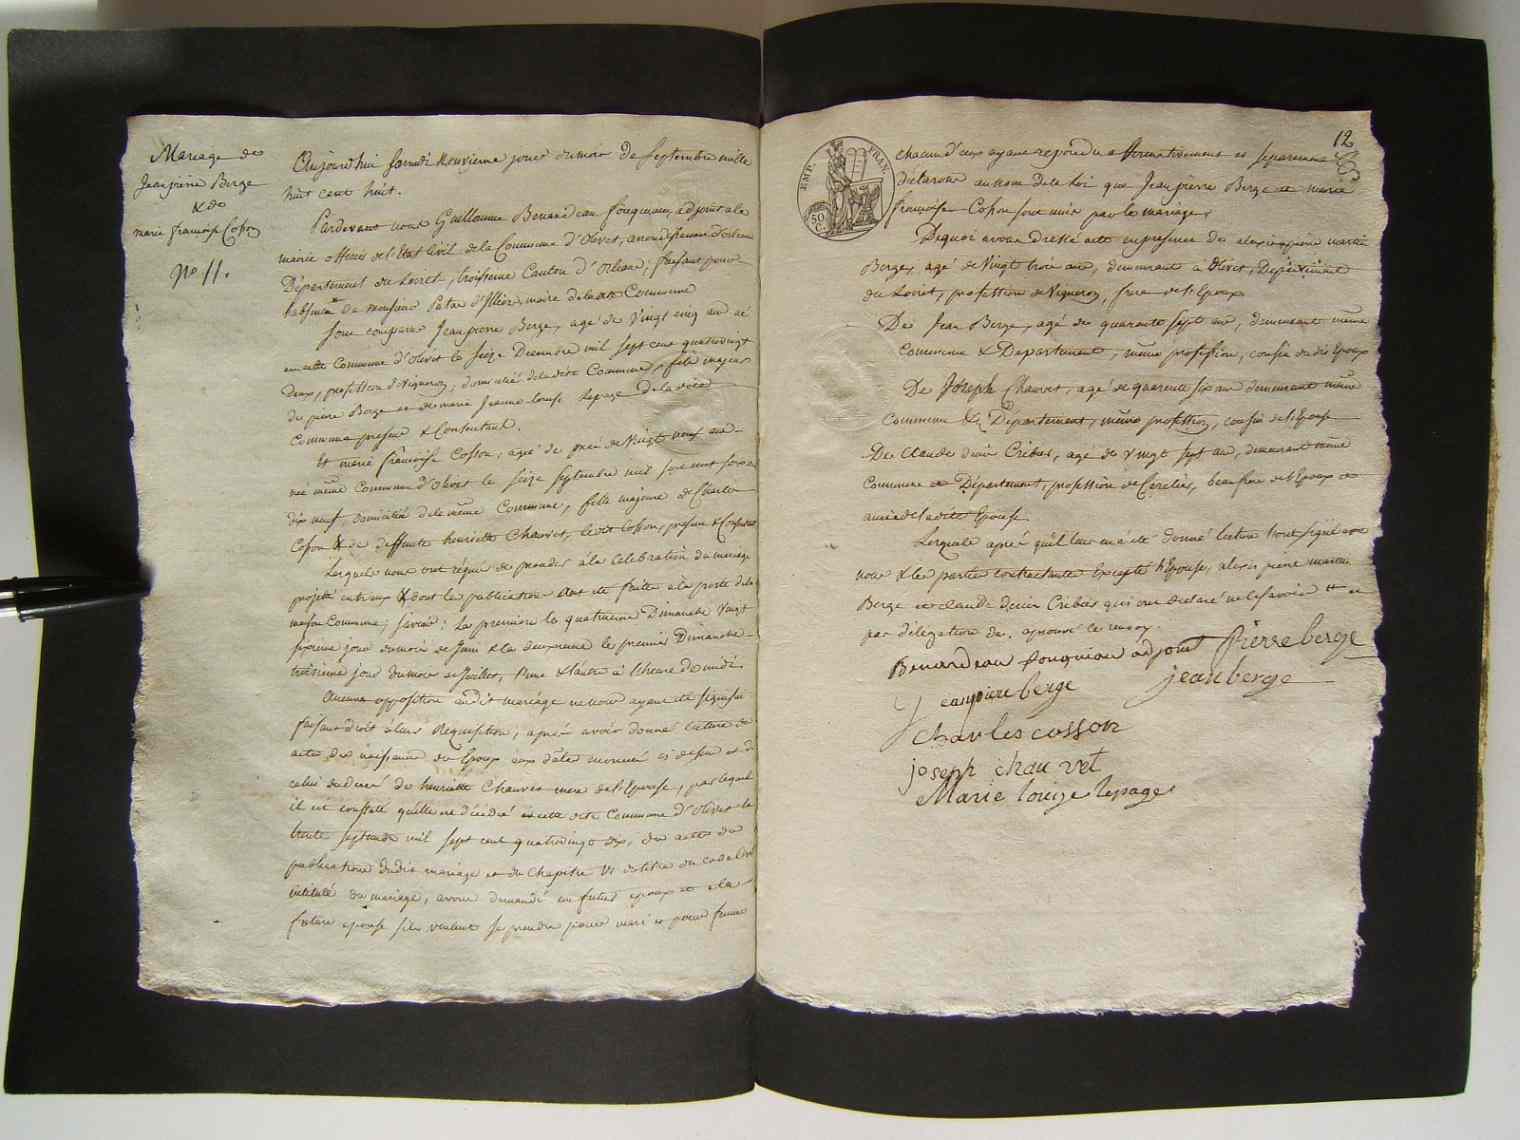 Mariage de
Jean pierre Berge
& de
marie francoise Cosson
No 11.
Aujourd'hui Samedi neuvieme jour du mois De Septembre mille
huit cent huit.
Pardevant nous Guillaume Benardeau fouqueau, adjoint a la
mairie officier de l'Etat Civil de la Commune d'Olivet, arrondissement d'orleans
Département du Loiret, troisieme Canton d'Orleans, faisant pour
l'absence de monsieur maire de la dite Commune
Sont comparus Jean pierre Berge, agé de Vingt cinq ans né
en cette Commune d'Olivet le Seize Decembre mil sept cent quatrevingt
deux, profession de Vigneron, domicilié de la dite Commune, fils majeur
de pierre Berge et de marie Jeanne louise Lepage de la dite
Commune present & Consentant.
Et marie francoise Cosson, agée de près de Vingt neuf ans
née même Commune d'Olivet le Seize Septembre mil sept cent soixante
dix neuf, domiciliée de la même Commune, fille majeure de Charles
Cosson & de deffunte henriette Chauvet, le dit Cosson, present & Consentant
Lesquels nous ont requis de proceder à la Celebration du mariage
projetté entr'eux & dont les publications ont été faites a la porte de la
maison Commune, savoir: la premiere le quatrieme Dimanche Vingt
sixieme jour du mois de Juin & la deuxieme le premier Dimanche
troisieme jour du mois de Juillet, l'une & l'autre à l'heure de midi.
Aucune opposition audit mariage ne nous ayant été signifiée
faisant droit à leur Requisition, après avoir donné lecture des
actes de naissance des Epoux aux dates enoncées ci dessus et de
celui de deces de henriette Chauvet mere de l'Epouse, par lequel
il est constaté qu'elle est décédée en cette dite Commune d'Olivet le
trente septembre mil sept cent quatrevingt dix, des actes de
publications dudit mariage et du Chapitre VI du titre du code Civil
intitulé du mariage, avons demandé au futur epoux et a la
future epouse s'ils veulent se prendre pour mari et pour femme
12
EMP. FRAN.
50 C.
chacun d'eux ayant repondu affirmativement et separement
declarons au nom de la loi que Jean pierre Berge et marie
françoise Cosson sont unis par le mariage.
De quoi avons dressé acte en presence de alexis pierre martin
Berge, agé de Vingt trois ans, demeurant à Olivet, Departement
du Loiret, profession de Vigneron, frere de l'Epoux
De Jean Berge, agé de quarante Sept ans, demeurant même
Commune & Departement, même profession, cousin du dit Epoux
De Joseph Chauvet, agé de quarante six ans demeurant même
Commune & Département, même profession, cousin de l'Epouse
De Claude denis Cribier, agé de vingt sept ans, demeurant même
Commune & Département, profession de beau frere de l'Epoux et
amie de la dite Epouse.
Lesquels après qu'il leur en a été donné lecture l'ont signé avec
nous & les parties contractantes Excepté l'Epouse, alexis pierre martin
Berge et claude denis Cribier qui ont declaré ne le savoir
par délégation de. aprouvé le renvoy.
Benardeau fouqueau adjoint Pierre berge
Jeanpiere berge jean berge
Charles cosson
joseph chauvet
Marie louize lepage